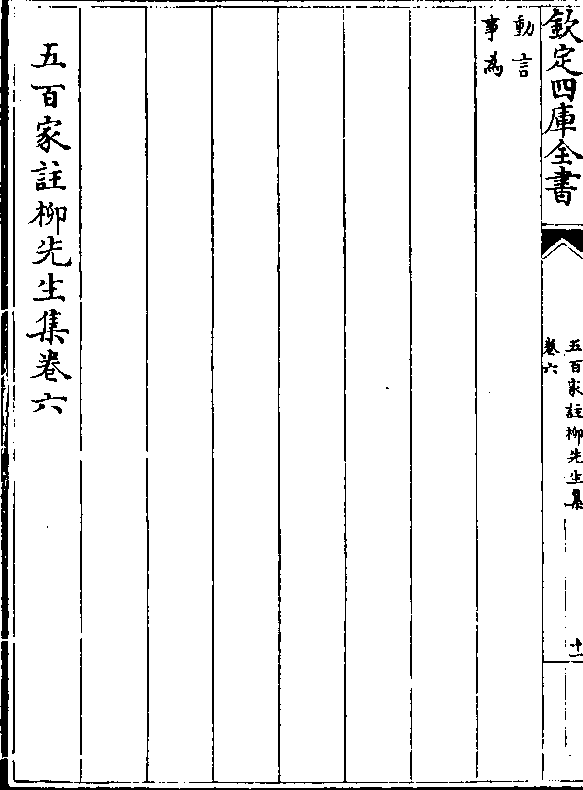 欽定四庫全書
五百家註柳先生集
卷六
十一
動言
事為
五百家註柳先生集卷六